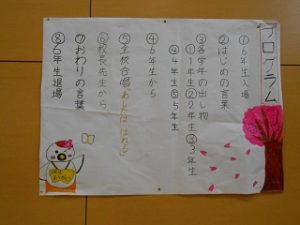 プログラム
①6年生入場
②はじめの言葉
③各学年の出し物
①1年生②2年生③3年生
④4年生⑤5年生
④6年生から
⑤全校合唱あしたははれる♪
⑥校長先生から
⑦おわりの言葉
⑧6年生退場